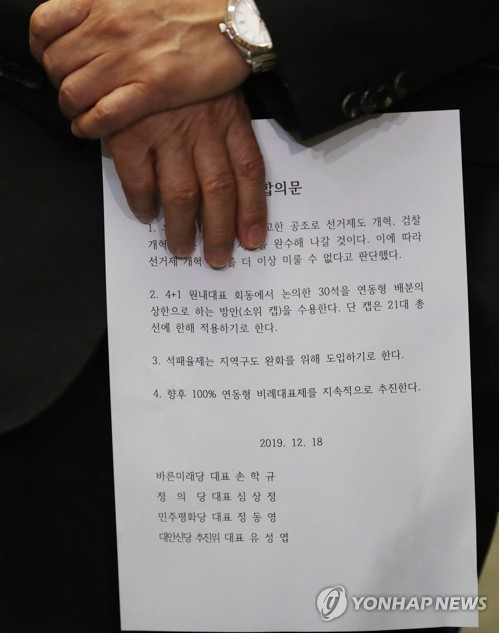 합의문
1. 고한 공조로 선거제도 개혁, 검찰
개혁 완수해 나갈 것이다. 이에 따라
선거제 개혁 더 이상 미룰 수 없다고 판단했다.
2. 4+1 원내대표 회동에서 논의한 30석을 연동형 배분의
상한으로 하는 방안(소위 캡)을 수용한다. 단 캡은 21대 총
선에 한해 적용하기로 한다.
3. 석패율제는 지역구도 완화를 위해 도입하기로 한다.
4. 향후 100% 연동형 비례대표제를 지속적으로 추진한다.
2019. 12. 18
바른미래당 대표 손 학 규
정 의 당 대표 심 상 정
민주평화당 대표 정 동 영
대안신당 추진위 대표 유 성 엽
YONHAP NEWS